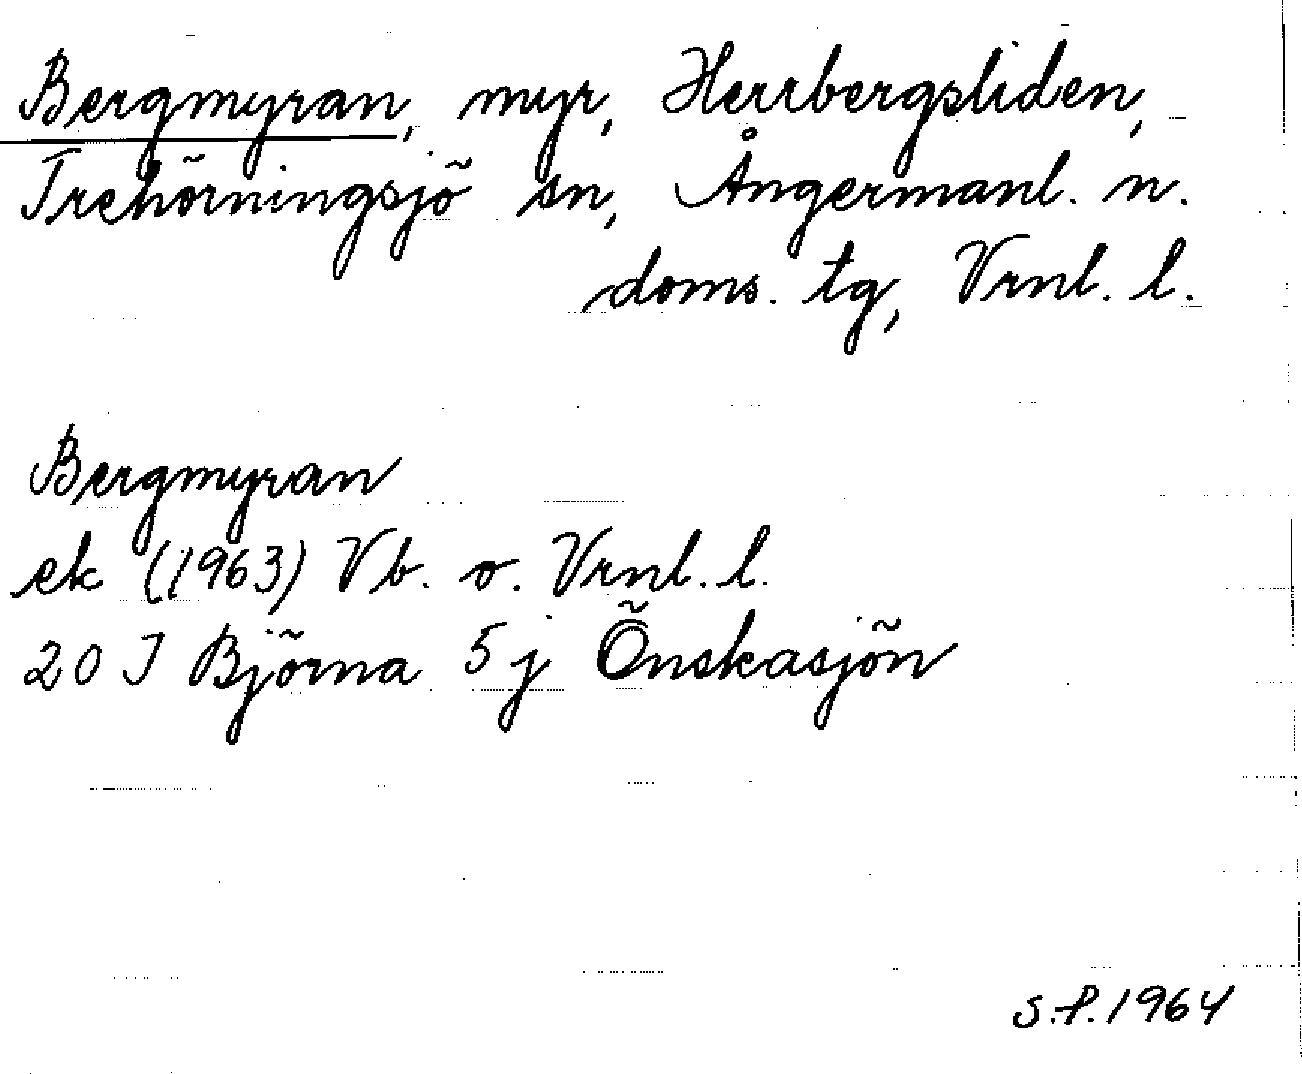 Bergmyran, myr, Herrbergsliden,
Trehörningsjö sn, Ångermanl. n.
doms. tg, Vrnl. l.
Bergmyran
ek (1963) Vb. o. Vrnl. l.
20 J Björna 5 j Önskasjön
S.P. 1964